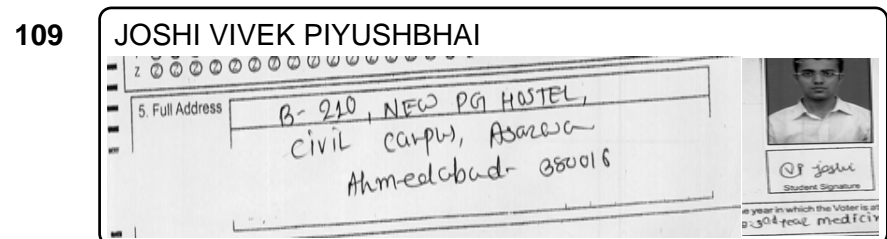 109
JOSHI VIVEK PIYUSHBHAI
Z Z Z Z Z Z Z Z Z Z Z Z Z Z Z Z Z Z
5. Full Address
B-210, NEW PG HOSTEL,
Civil Campus, Asarwa
Ahmedabad- 380016
joshi
Student Signature
year in which the Voter is
year medicin